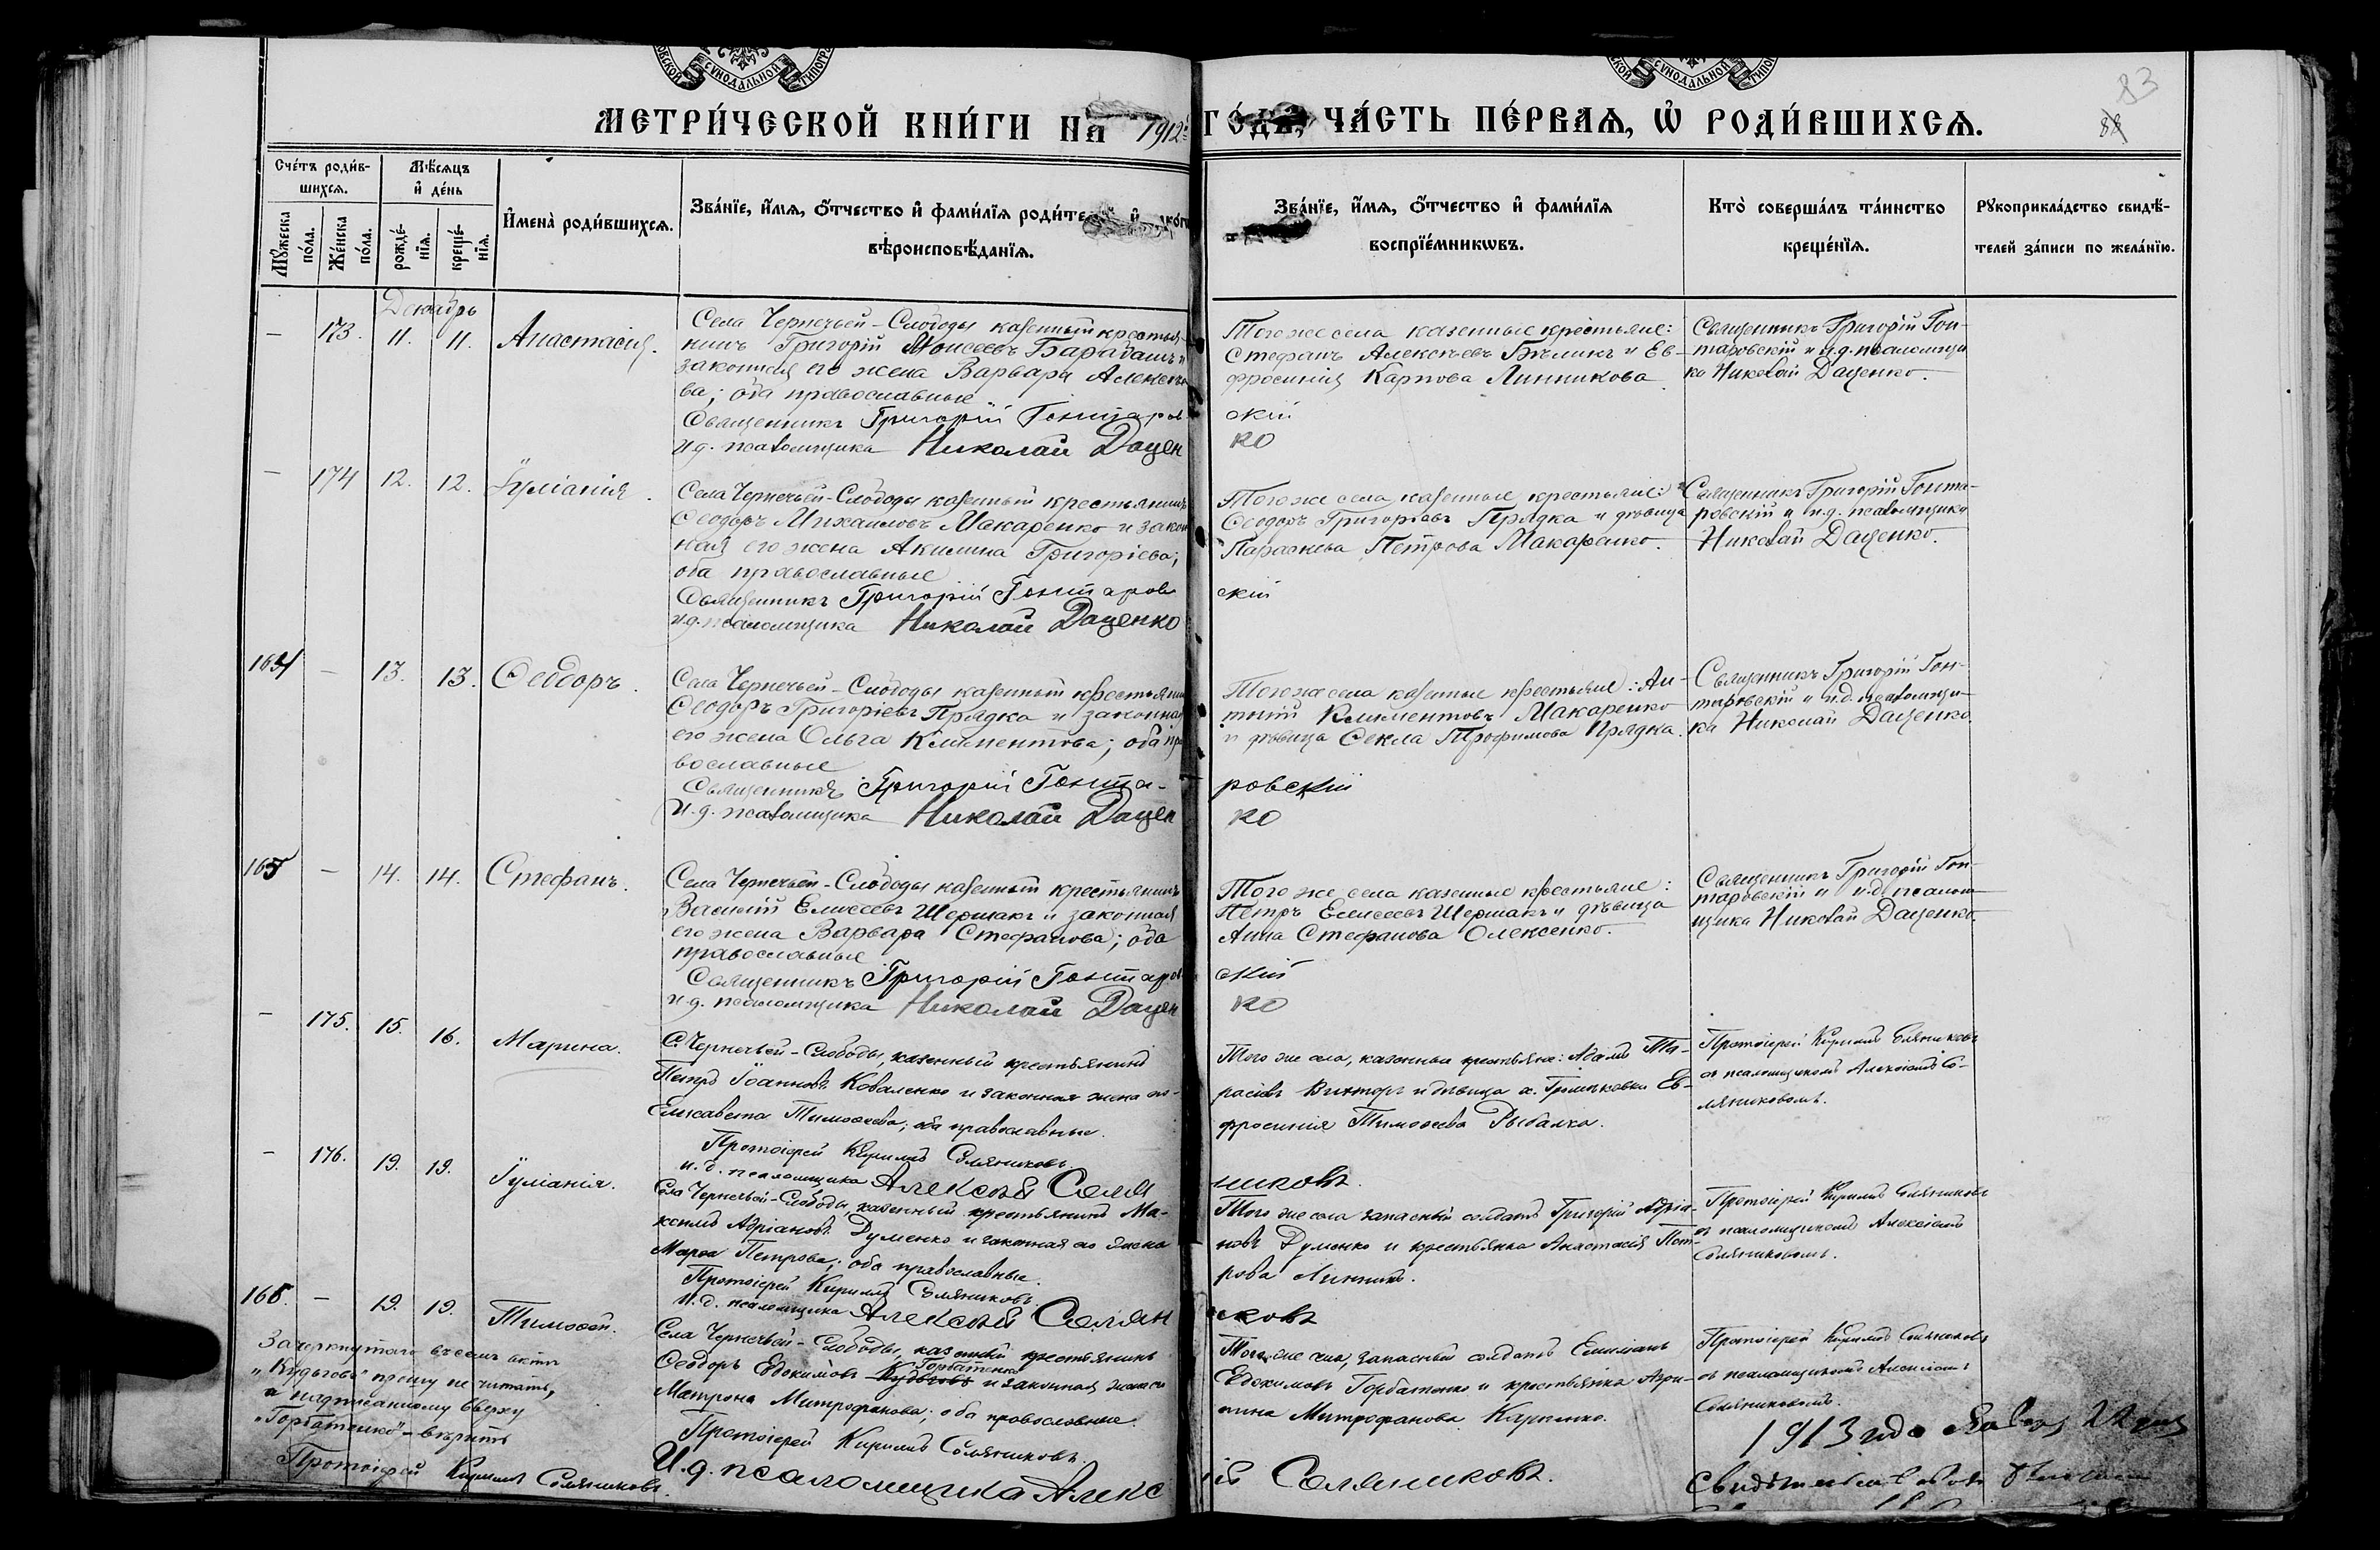 МЕТРИ́ЧЕСКОЙ КНИ́ГИ НА 1912 ГО́ДЪ, ЧА́СТЬ ПЕ́РВАЯ, Ѽ РОДИ́ВШИХСЯ.
83
Сче́тъ роди́в-
шихся.
Мѣ́сяцъ
и҆ де́нь
Мꙋ́жеска
по́ла.
Же́нска
по́ла.
рожде́-
нїя.
креще́-
нїя.
И҆мена̀ роди́вшихся.
Зва́нїе, и҆́мя, ѻ҆́тчество и҆ фами́лїя роди́телей и҆
вѣроисповѣ́данїя.
Зва́нїе, и҆́мя, ѻ҆́тчество и҆ фами́лїя
воспрїе́мникѡвъ.
Кто̀ соверша́лъ та́инство
креще́нїя.
Рꙋкоприкла́дство свидѣ́-
телей за́писи по жела́нїю.
Декабрь
— 173. 11. 11. Анастасія.
Села Чернечьей-Слободы казенный крестья-
нинъ Григорій Моисеевъ Барабашъ и
законная его жена Варвара Алексѣе
ва; оба православные
Священникъ Григорій Гонтаров
и.д. псаломщика Николай Дацен
Того же села казенные крестьяне:
Стефанъ Алексѣевъ Бѣликъ и Ев-
фросинія Карпова Линникова
скій
ко
Священникъ Григорій Гон-
таровскій и и.д. псаломщи
ка Николай Даценко.
— 174 12. 12. Іуліанія.
Села Чернечьей-Слободы казенный крестьянинъ
Ѳеодоръ Михаиловъ Макаренко и закон
ная его жена Акилина Григоріева;
оба православные
Священникъ Григорій Гонтаров
и.д. псаломщика Николай Даценко
Того же села казенные крестьяне:
Ѳеодоръ Григоріевъ Прядка и дѣвица
Параскева Петрова Макаренко.
скій
Священникъ Григорій Гонта-
ровскій и и.д. псаломщика
Николай Даценко.
164 — 13. 13. Ѳеодоръ.
Села Чернечьей-Слободы казенный крестьянин
Ѳеодоръ Григоріевъ Прядка и законная
его жена Ольга Климентова; оба пра
вославные
Священникъ Григорій Гонта-
и.д. псаломщика Николай Дацен
Того же села казенные крестьяне: Ан-
тній Климентовъ Макаренко
и дѣвица Ѳекла Трофимова Прядка.
ровскій
ко
Священникъ Григорій Гон-
таровскій и и.д. псаломщи-
ка Николай Даценко.
165 — 14. 14. Стефанъ.
Села Чернечьей-Слободы казенный крестьянинъ
Василій Елисеевъ Шершакъ и законная
его жена Варвара Стефанова; оба
православные
Священникъ Григорій Гонтаров
и.д. псаломщика Николай Дацен
Того же села казенные крестьяне:
Петръ Елисеевъ Шершакъ и дѣвица
Анна Стефанова Олексенко.
скій
ко
Священникъ Григорій Гон-
таровскій и и.д. псалом
щика Николай Даценко.
— 175. 15. 16. Марина.
С. Чернечьей-Слободы, казенный крестьянинъ
Петръ Іоанновъ Коваленко и законная жена его
Елисавета Тимоѳеева; оба православные.
Протоіерей Кириллъ Соляниковъ.
и.д. псаломщика Алексѣй Соля
Того же села, казенные крестьяне: Адамъ Та-
расіевъ и дѣвица х. Ев-
фросинія Тимоѳеева Рыбалка.
никовъ.
Протоіерей Кириллъ Соляниковъ
съ псаломщикомъ Алексіемъ Со-
ляниковымъ.
— 176. 19. 19. Іуліанія.
Села Чернечьей-Слободы, казенный крестьянинъ Ма-
ксимъ Адріановъ Думенко и законная его жена
Марѳа Петрова; оба православные.
Протоіерей Кириллъ Соляниковъ.
и.д. псаломщика Алексѣй Солян
Того же села запасный солдатъ Григорій Адріа-
новъ Думенко и крестьянка Анастасія Пет-
рова Линникъ.
иковъ
Протоіерей Кириллъ Соляниковъ
съ псаломщикомъ Алексіемъ
Соляниковымъ.
166. — 19. 19. Тимоѳей.
Села Чернечьей-Слободы, казенный крестьянинъ
Горбатенко
Ѳеодоръ Евдокимовъ Кудьговъ и законная жена его
Матрона Митрофанова; оба православные.
Протоіерей Кириллъ Соляниковъ.
И.д. псаломщика Алекс
Того же села, запасный солдатъ Емиліанъ
Евдокимовъ Горбатенко и крестьянка Агри-
пина Митрофанова Карпенко.
ій Соляниковъ.
Протоіерей Кириллъ Соляниковъ
съ псаломщикомъ Алексіемъ
Соляниковымъ.
Зачеркнутаго въ семъ актѣ
„Кудьговъ" прошу не читать,
а надписанному вверху
„Горбатенко" – вѣрить
Протоіерей Кириллъ Соляниковъ.
1913 года